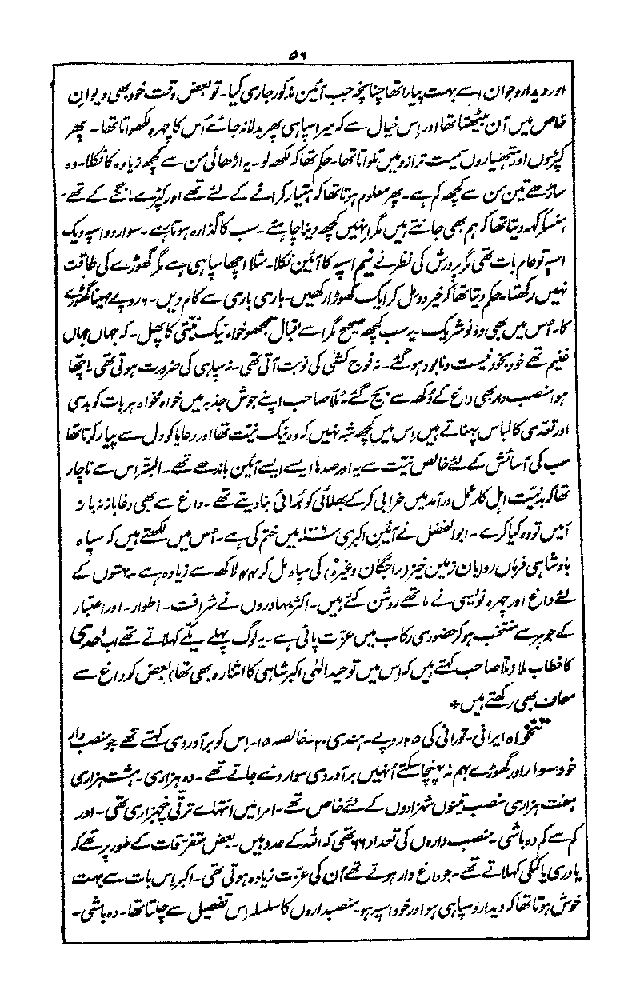 ۵۶
اور دیدارو جوان اسے بہت پیارا تھا چنانچہ جب آئین مذکور جاری کیا۔ تو بعض وقت خود بھی دیوان
خاص میں آن بیٹھتا تھا اور اس خیال سے کہ میرا سپاہی پھر بدلا نہ جائے اُس کا چہرہ لکھواتا تھا۔ پھر
کپڑوں اور ہتھیاروں سمیت ترازو میں تلواتا تھا۔ حکم تھا کہ لکھ لو۔ یہ اڑھائی من سے کچھ زیادہ کا نکلا۔ وہ
ساڑھے تین من سے کچھ کم ہے۔ پھر معلوم ہوتا تھا کہ ہتیار کرائے کے لئے تھے اور کپڑے مانگے کے تھے۔
ہنسکر کہہ دیتا تھا کہ ہم بھی جانتے ہیں مگر انہیں کچھ دینا چاہئے۔ سب کا گذارہ ہوتا ہے۔ سوار دو اسپہ و یک
اسپہ تو عام بات تھی مگر پرورش کی نظر نے نیم اسپہ کا آئین نکالا۔ مثلاً اچھا سپاہی ہے مگر گھوڑے کی طاقت
نہیں رکھتا۔ حکم دیتا تھا کہ خیر دو مل کر ایک گھوڑا رکھیں۔ باری باری سے کام دیں۔ ۶ روپے مہینا گھوڑے
کا۔ اُس میں بھی دونو شریک۔ یہ سب کچھ صحیح مگر اسے اقبال سمجھو خواہ نیک نیتی کا پھل۔ کہ جہاں جہاں
غنیم تھے خود بخود نیست و نابود ہو گئے۔ نہ فوج کشی کی نوبت آتی تھی۔ نہ سپاہی کی ضرورت ہوتی تھی۔ اچھا
ہوا منصبدار بھی داغ کے دُکھ سے بچ گئے۔ مُلا صاحب اپنے جوش جذبہ میں خواہ مخواہ ہر بات کو بدی
اور تعدی کا لباس پہناتے ہیں اس میں کچھ شبہ نہیں کہ وہ نیک نیت تھا اور رعایا کو دل سے پیار کرتا تھا
سب کی آسائش کے لئے خالص نیت سے یہ اور صدہا ایسے ایسے آئین باندھے تھے۔ البتہ اس سے ناچار
تھا کہ بدنیت اہل کار عمل درآمد میں خرابی کر کے بھلائی کو بُرائی بنا دیتے تھے۔ داغ سے بھی دغاباز نہ باز
آئیں تو وہ کیا کرے۔ ابوالفضل نے آئین اکبری سنہ ۱۰۰۶ میں ختم کی ہے۔ اُس میں لکھتے ہیں کہ سپاہ
بادشاہی فرماں روایان زمین خیز (راجگان وغیرہ) کی سپاہ مل کر ۴۴ لاکھ سے زیادہ ہے۔ بہتوں کے
لئے داغ اور چہرہ نویسی نے ماتھے روشن کئے ہیں۔ اکثر بہادروں نے شرافت۔ اطوار۔ اور اعتبار
کے جوہر سے منتخب ہو کر حضوری رکاب میں عزت پائی ہے۔ یہ لوگ پہلے یکے کہلاتے تھے اب احدی
کا خطاب ملا (ملا صاحب کہتے ہیں کہ اس میں توحید الٰہی اکبر شاہی کا اشارہ بھی تھا) بعض کو داغ سے
معاف بھی رکھتے ہیں *
تنخواہ ایرانی۔ تورانی کی ۲۵ روپے۔ ہندی ۲۰۔ خالصہ ۱۵۔ اس کو برآوردی کہتے تھے جو منصب دار
خود سوار اور گھوڑے بہم نہ پہنچا سکتے اُنہیں برآوردی سوار دئے جاتے تھے۔ دہ ہزاری۔ ہشت ہزاری
ہفت ہزاری منصب تینوں شہزادوں کے لئے خاص تھے۔ امرا میں انتہائے ترقی پنجہزاری تھی۔ اور
کم سے کم دہ باشی۔ منصب داروں کی تعداد ۶۶ تھی کہ اللہ کے عدد ہیں۔ بعض متفرقات کے طور پر تھے کہ
یاوری یا کمکی کہلاتے تھے۔ جو داغ دار ہوتے تھے اُن کی عزت زیادہ ہوتی تھی۔ اکبر اس بات سے بہت
خوش ہوتا تھا کہ دیدارو سپاہی ہو اور خود اسپہ ہو۔ منصبداروں کا سلسلہ اس تفصیل سے چلتا تھا۔ دہ باشی۔